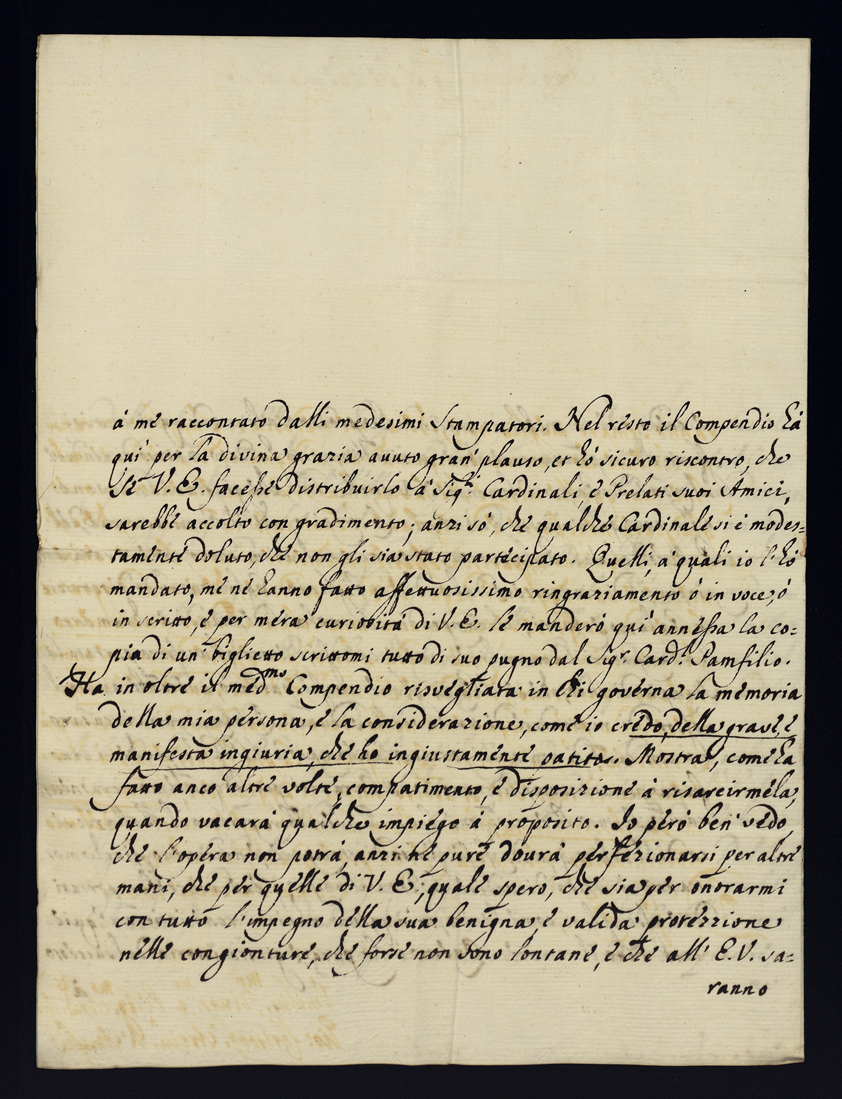 à me raccontato dalli medesimi Stampatori. Nel resto il Compendio hà
quì per la divina grazia auuto gran' plauso, et hò sicuro riscontro, che
se V. E. facesse distribuirlo à Sig.ri Cardinali, e Prelati suoi Amici,
sarebbe accolto con gradimento; anzi sò, che qualche Cardinale si è modes=
tamente doluto, che non gli sia stato partecipato. Quelli, à quali io l'hò
mandato, me ne hanno fatto affettuosissimo ringraziamento ò in voce, ò
in scritto, e per mera curiosità di V. E. le manderò quì annessa la co=
pia di un' biglietto scrittomi tutto di suo pugno dal Sig.r Card.l Pamfilio.
Ha in oltre il med.mo Compendio risvegliata in chi governa la memoria
della mia persona, e la considerazione, come io credo, della grave, e
manifesta ingiuria, che ho ingiustamente patito. Mostra, come hà
fatto anco altre volte, compatimento, e disposizione à risarcirmela,
quando vacarà qualche impiego à proposito. Io però ben' vedo,
che l'opera non potrà, anzi nè pure dourà perfezionarsi per altre
mani, che per quelle di V. E., quale spero, che sia per onorarmi
con tutto l'impegno della sua benigna, e valida protezzione
nelle congionture, che forse non sono lontane, e che all' E. V. sa=
ranno